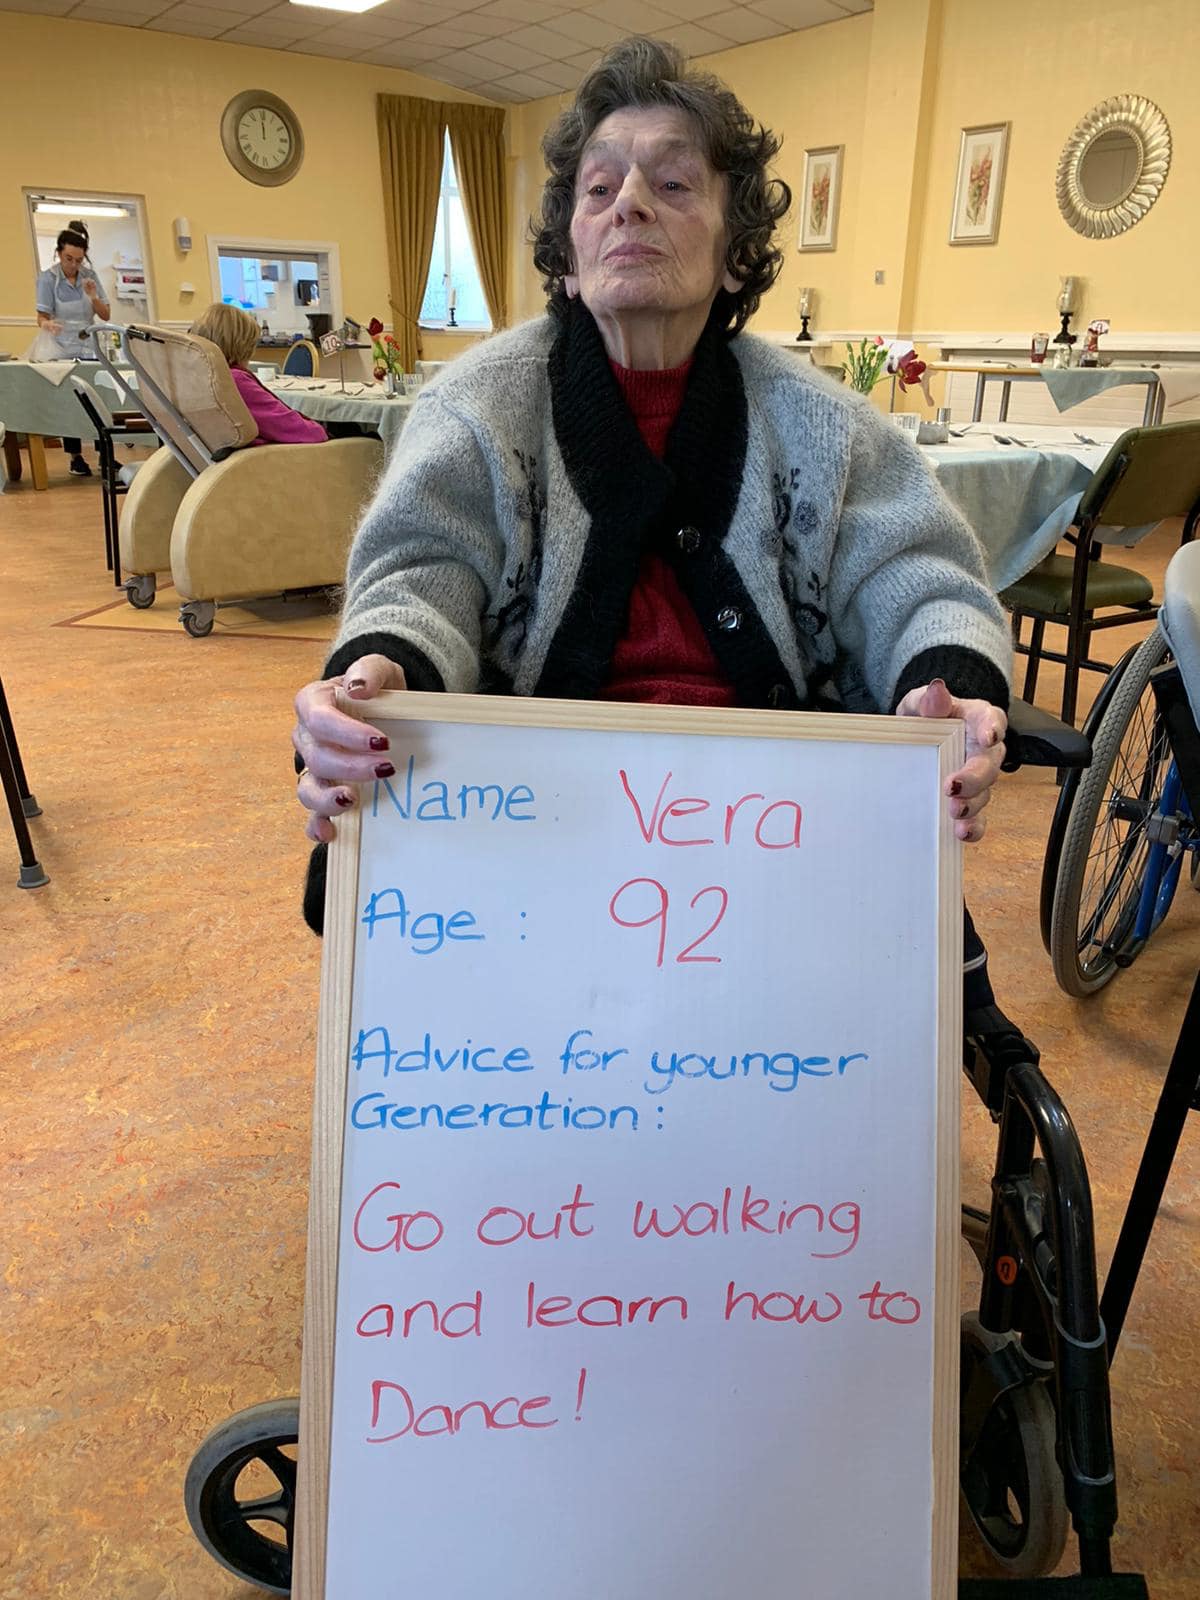 Name: Vera
Age: 92
Advice for younger
Generation:
Go out walking
and learn how to
Dance!